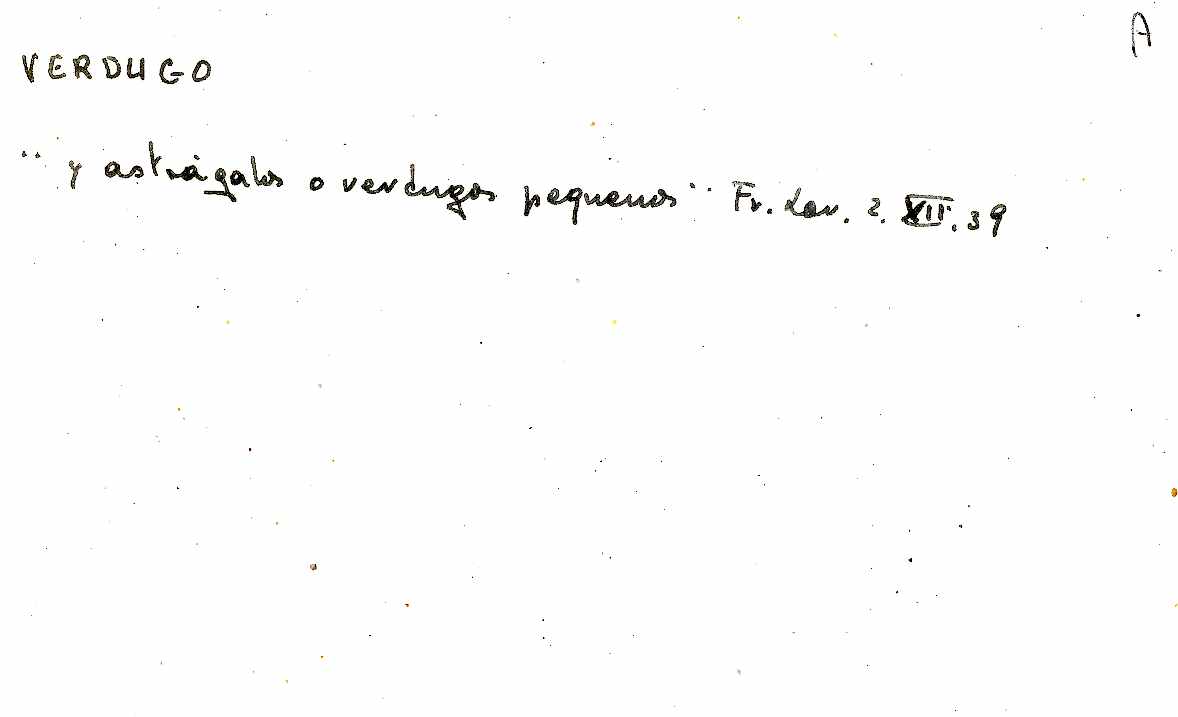 A
VERDUGO
"y astrágalos o verdugos pequenos" Fr. Lav. 2. XII. 39